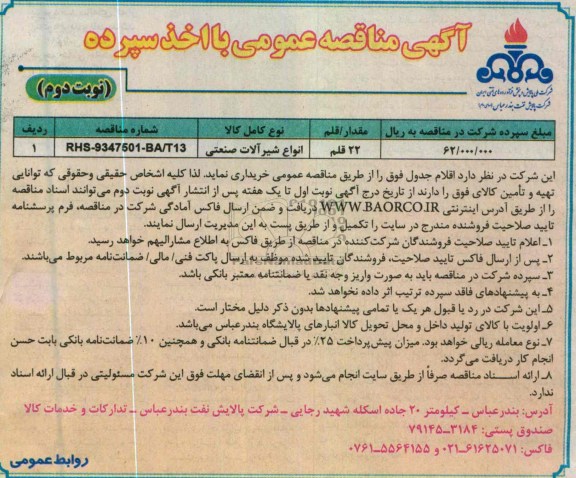 آگهی مناقصه عمومی با اخذ سپرده
(نوبت دوم)
شرکت ملی پالایش و پخش فرآورده‌های نفتی ایران
شرکت پالایش نفت بندرعباس
ردیف شماره مناقصه نوع کامل کالا مقدار/قلم مبلغ سپرده شرکت در مناقصه به ریال
۱ RHS-9347501-BA/T13 انواع شیرآلات صنعتی ۲۲ قلم ۶۲/۰۰۰/۰۰۰
این شرکت در نظر دارد اقلام جدول فوق را از طریق مناقصه عمومی خریداری نماید. لذا کلیه اشخاص حقیقی وحقوقی که توانایی
تهیه و تأمین کالای فوق را دارند از تاریخ درج آگهی نوبت اول تا یک هفته پس از انتشار آگهی نوبت دوم می‌توانند اسناد مناقصه
را از طریق آدرس اینترنتی WWW.BAORCO.IR دریافت و ضمن ارسال فاکس آمادگی شرکت در مناقصه، فرم پرسشنامه
تایید صلاحیت فروشنده مندرج در سایت را تکمیل و از طریق پست به این مدیریت ارسال نمایند.
۱ـ اعلام تایید صلاحیت فروشندگان شرکت‌کننده در مناقصه از طریق فاکس به اطلاع مشارالیهم خواهد رسید.
۲ـ پس از ارسال فاکس تایید صلاحیت، فروشندگان تایید شده موظف به ارسال پاکت فنی/ مالی/ ضمانت‌نامه مربوط می‌باشند.
۳ـ سپرده شرکت در مناقصه باید به صورت واریز وجه نقد یا ضمانتنامه معتبر بانکی باشد.
۴ـ به پیشنهادهای فاقد سپرده ترتیب اثر داده نخواهد شد.
۵ـ این شرکت در رد یا قبول هر یک یا تمامی پیشنهادها بدون ذکر دلیل مختار است.
۶ـ اولویت با کالای تولید داخل و محل تحویل کالا انبارهای پالایشگاه بندرعباس می‌باشد.
۷ـ نوع معامله ریالی خواهد بود. میزان پیش‌پرداخت ۲۵٪ در قبال ضمانتنامه بانکی و همچنین ۱۰٪ ضمانت‌نامه بانکی بابت حسن
انجام کار دریافت می‌گردد.
۸ـ ارائه اسناد مناقصه صرفاً از طریق سایت انجام می‌شود و پس از انقضای مهلت فوق این شرکت مسئولیتی در قبال ارائه اسناد
ندارد.
آدرس: بندرعباس ـ کیلومتر ۲۰ جاده اسکله شهید رجایی ـ شرکت پالایش نفت بندرعباس ـ تدارکات و خدمات کالا
صندوق پستی: ۳۱۸۴ـ۷۹۱۴۵
فاکس: ۶۱۶۲۵۰۷۱ـ۰۲۱ و ۵۵۶۴۱۵۵ـ۰۷۶۱
روابط عمومی